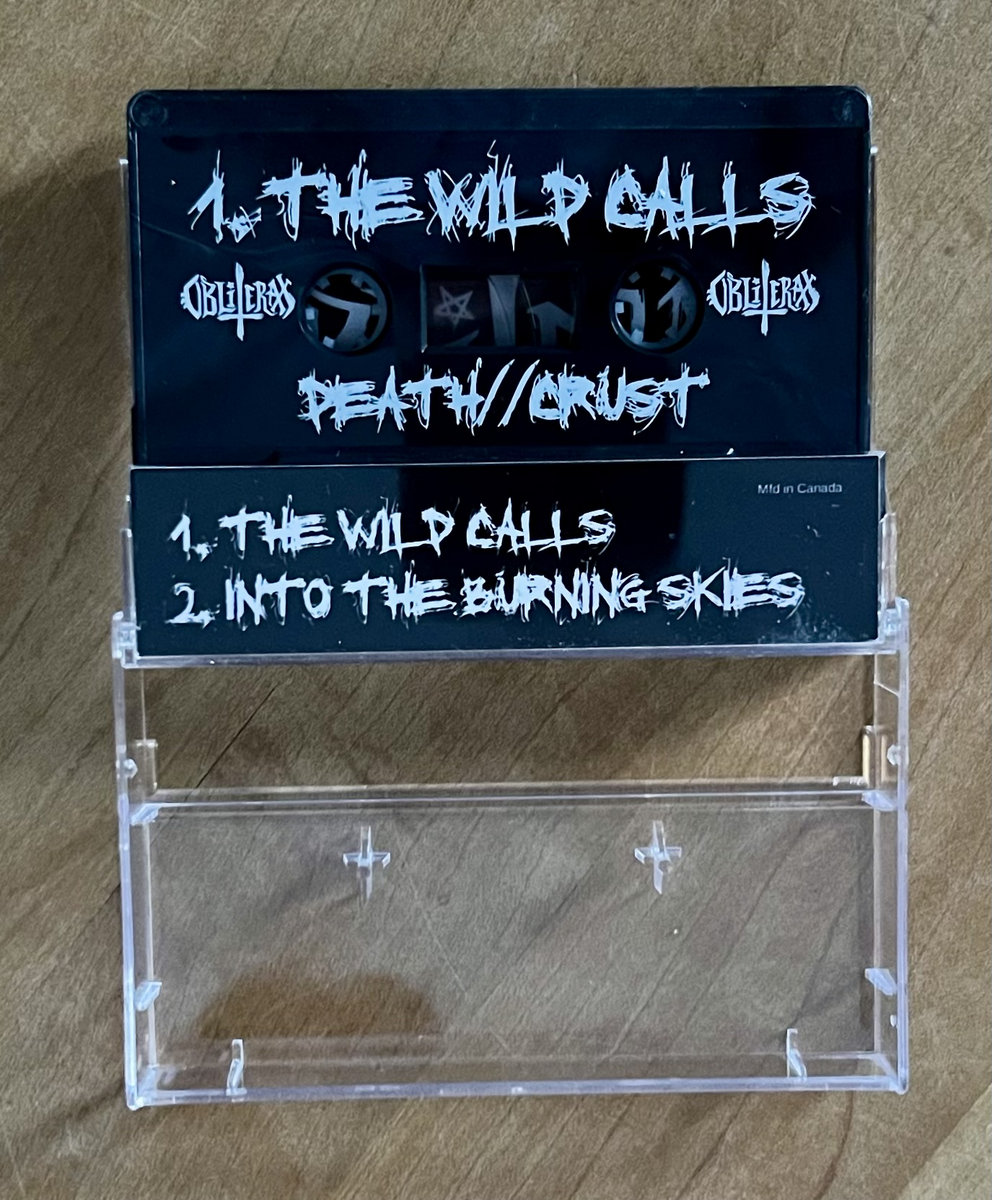 1. THE WILD CALLS
OBLITERAX OBLITERAX
DEATH//CRUST
Mfd in Canada
1. THE WILD CALLS
2. INTO THE BURNING SKIES